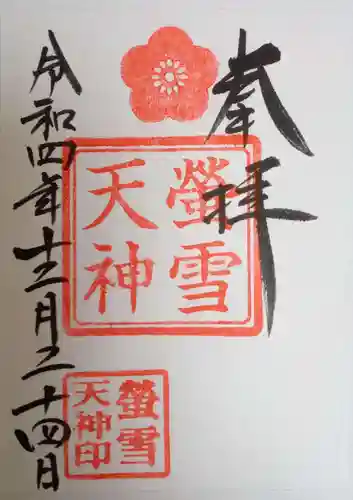 奉拝
螢雪
天神
螢雪
天神印
令和四年十二月二十四日